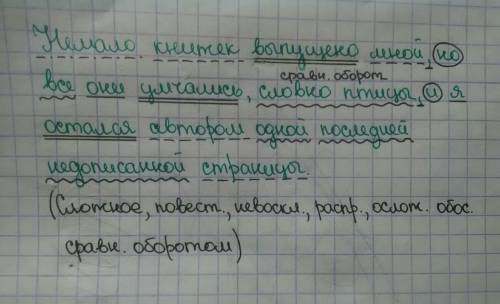 Немало книжек выпущено мной, но
сравн. оборот
все они умчались, словно птицы, и я
остался автором одной последней
недописанной страницы.
(Сложное, повест., невоскл., распр., ослож. обос.
сравн. оборотом)